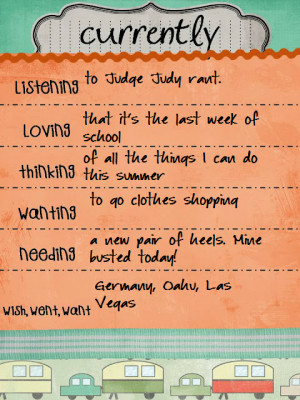 currently
Listening to Judge Judy rant.
Loving that it's the last week of
school
thinking of all the things I can do
this summer
wanting to go clothes shopping
needing a new pair of heels. Mine
busted today!
Germany, Oahu, Las
wish, went, want Vegas